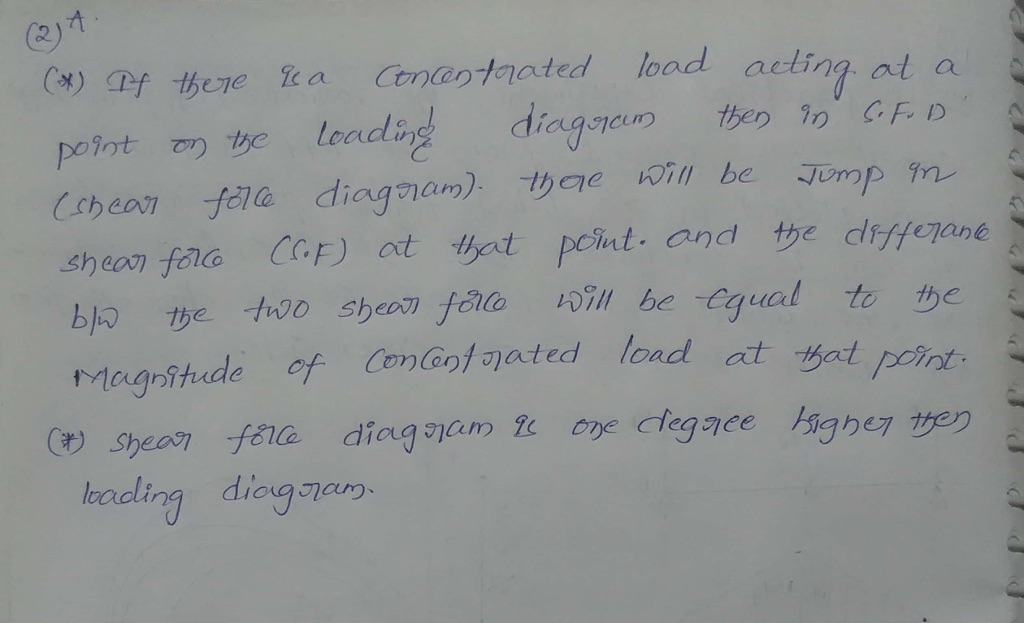 (2) A.
(*) If there is a Concentrated load acting at a
point on the loading diagram then in S.F.D
(shear force diagram). there will be Jump in
shear force (S.F) at that point. and the differance
b/w the two shear force will be Equal to the
Magnitude of Concentrated load at that point.
(*) shear force diagram is one degree higher then
loading diagram.